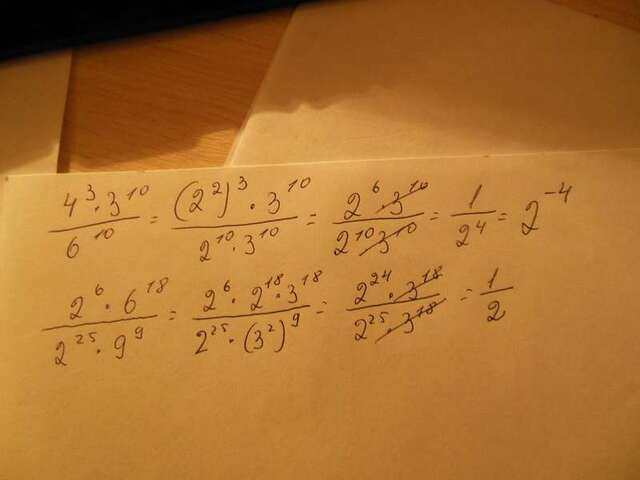 \frac{4^3 \cdot 3^{10}}{6^{10}} = \frac{(2^2)^3 \cdot 3^{10}}{2^{10} \cdot 3^{10}} = \frac{2^6 \cdot 3^{10}}{2^{10} \cdot 3^{10}} = \frac{1}{2^4} = 2^{-4}
\frac{2^6 \cdot 6^{18}}{2^{25} \cdot 9^9} = \frac{2^6 \cdot 2^{18} \cdot 3^{18}}{2^{25} \cdot (3^2)^9} = \frac{2^{24} \cdot 3^{18}}{2^{25} \cdot 3^{18}} = \frac{1}{2}